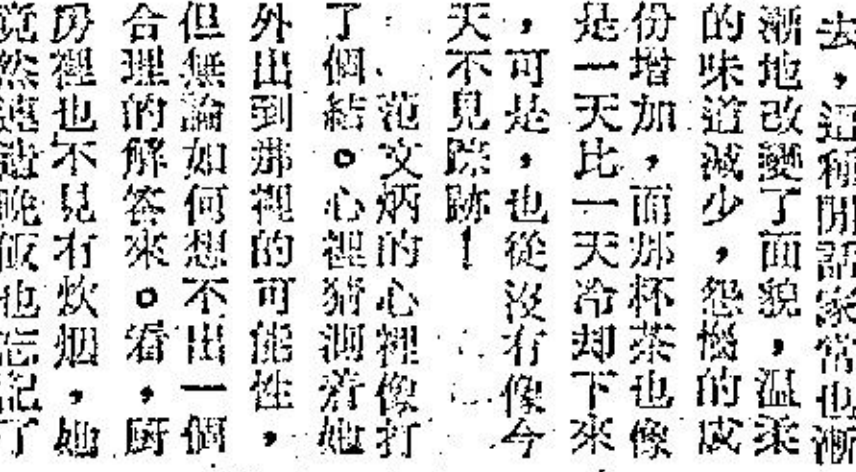 去，這種閒話家常也漸
漸地改變了面貌，温柔
的味道減少，怨懟的成
份增加，而那杯茶也像
是一天比一天冷却下來
，可是，也從沒有像今
天不見踪跡！
范文炳的心裡像打
了個結。心裡猜測着她
外出到那裡的可能性，
但無論如何想不出一個
合理的解答來。看，厨
房裡也不見有炊烟，她
竟然連燒晚飯也忘記了